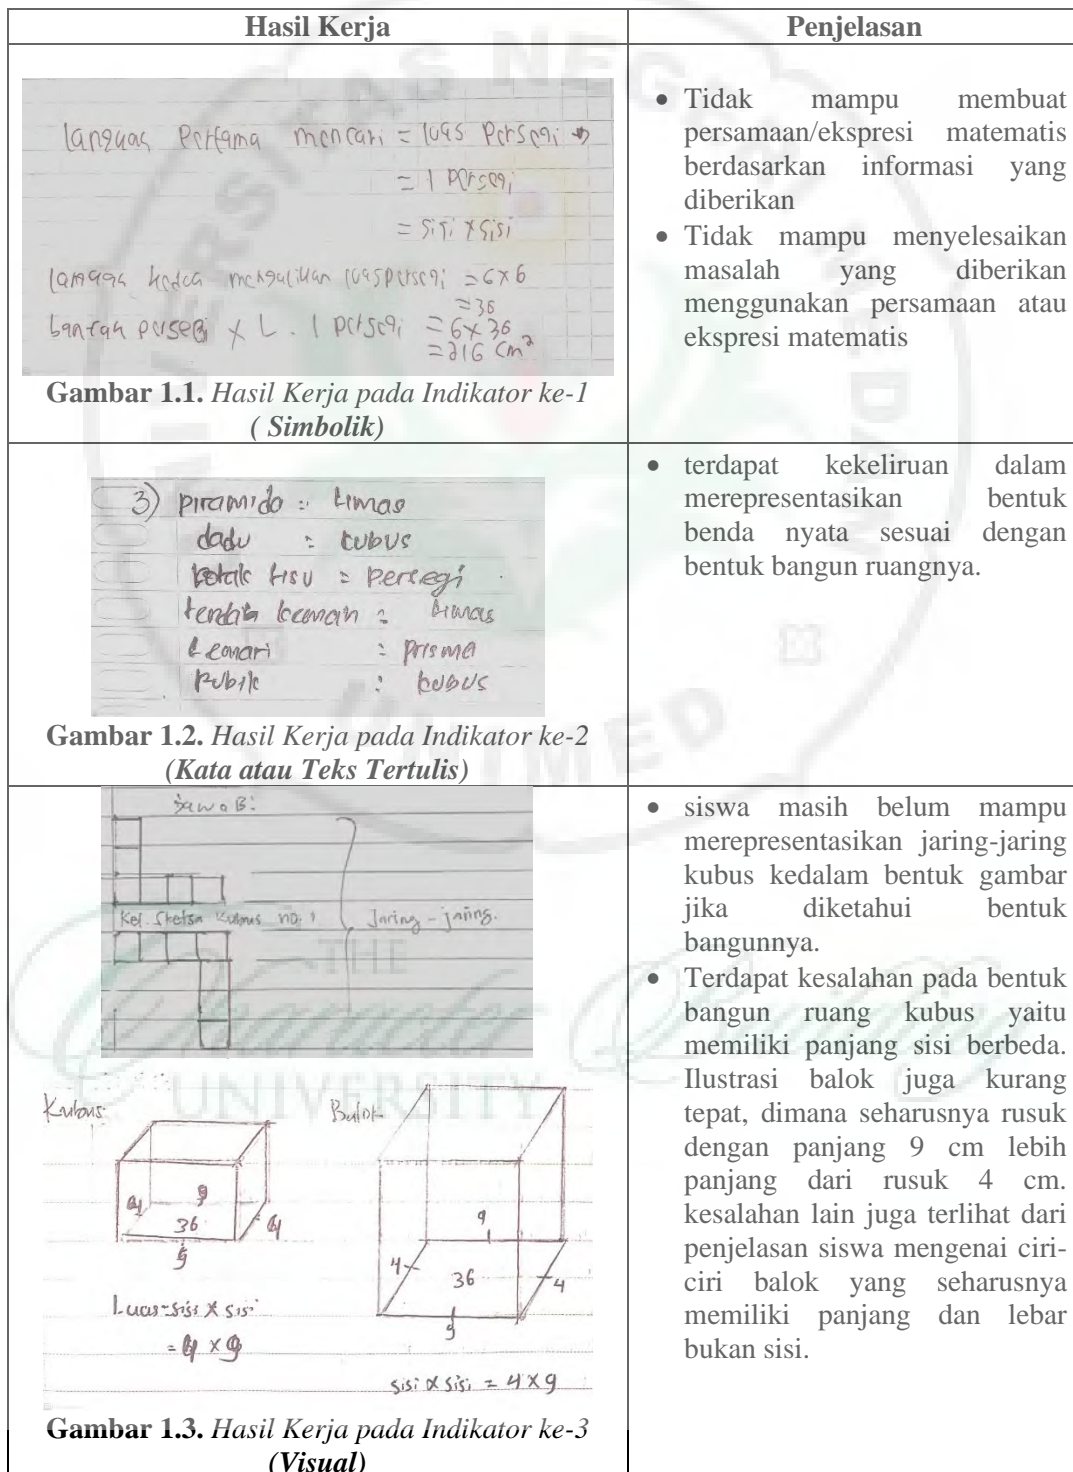 Hasil Kerja
Penjelasan
langkah Pertama mencari = luas Persegi
= 1 Persegi
= sisi x sisi
langkah kedua mengalikan luas persegi = 6x6
= 36
banyak persegi x L. 1 persegi = 6x36
= 216 cm²
Gambar 1.1. Hasil Kerja pada Indikator ke-1
( Simbolik)
• Tidak mampu membuat
persamaan/ekspresi matematis
berdasarkan informasi yang
diberikan
• Tidak mampu menyelesaikan
masalah yang diberikan
menggunakan persamaan atau
ekspresi matematis
3) piramida : limas
dadu : kubus
kotak tisu = persegi
tenda kemah : limas
Lemari : prisma
Rubik : kubus
Gambar 1.2. Hasil Kerja pada Indikator ke-2
(Kata atau Teks Tertulis)
• terdapat kekeliruan dalam
merepresentasikan bentuk
benda nyata sesuai dengan
bentuk bangun ruangnya.
JawaB:
Ket. Sketsa Kubus no. 1
Jaring-jaring.
Kubus
4
9
36
4
9
Luas = sisi x sisi
= 4 x 9
Balok
9
4
36
4
9
sisi x sisi = 4 x 9
Gambar 1.3. Hasil Kerja pada Indikator ke-3
(Visual)
• siswa masih belum mampu
merepresentasikan jaring-jaring
kubus kedalam bentuk gambar
jika diketahui bentuk
bangunnya.
• Terdapat kesalahan pada bentuk
bangun ruang kubus yaitu
memiliki panjang sisi berbeda.
Ilustrasi balok juga kurang
tepat, dimana seharusnya rusuk
dengan panjang 9 cm lebih
panjang dari rusuk 4 cm.
kesalahan lain juga terlihat dari
penjelasan siswa mengenai ciri-
ciri balok yang seharusnya
memiliki panjang dan lebar
bukan sisi.
UNIMED
THE
Character Building
UNIVERSITY